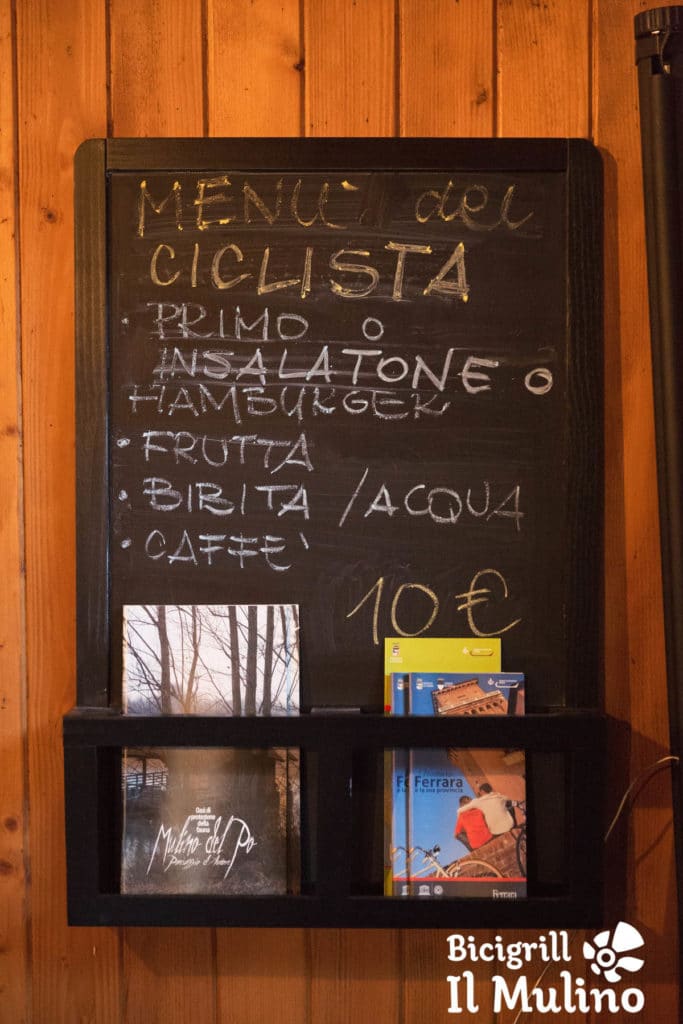 MENU' del
CICLISTA
• PRIMO O
INSALATONE O
HAMBURGER
• FRUTTA
• BIBITA / ACQUA
• CAFFE'
10 €
Oasi di
protezione
della
fauna
Mulino del Po
Ferrara
e la sua provincia
Ferrara
Bicigrill
Il Mulino